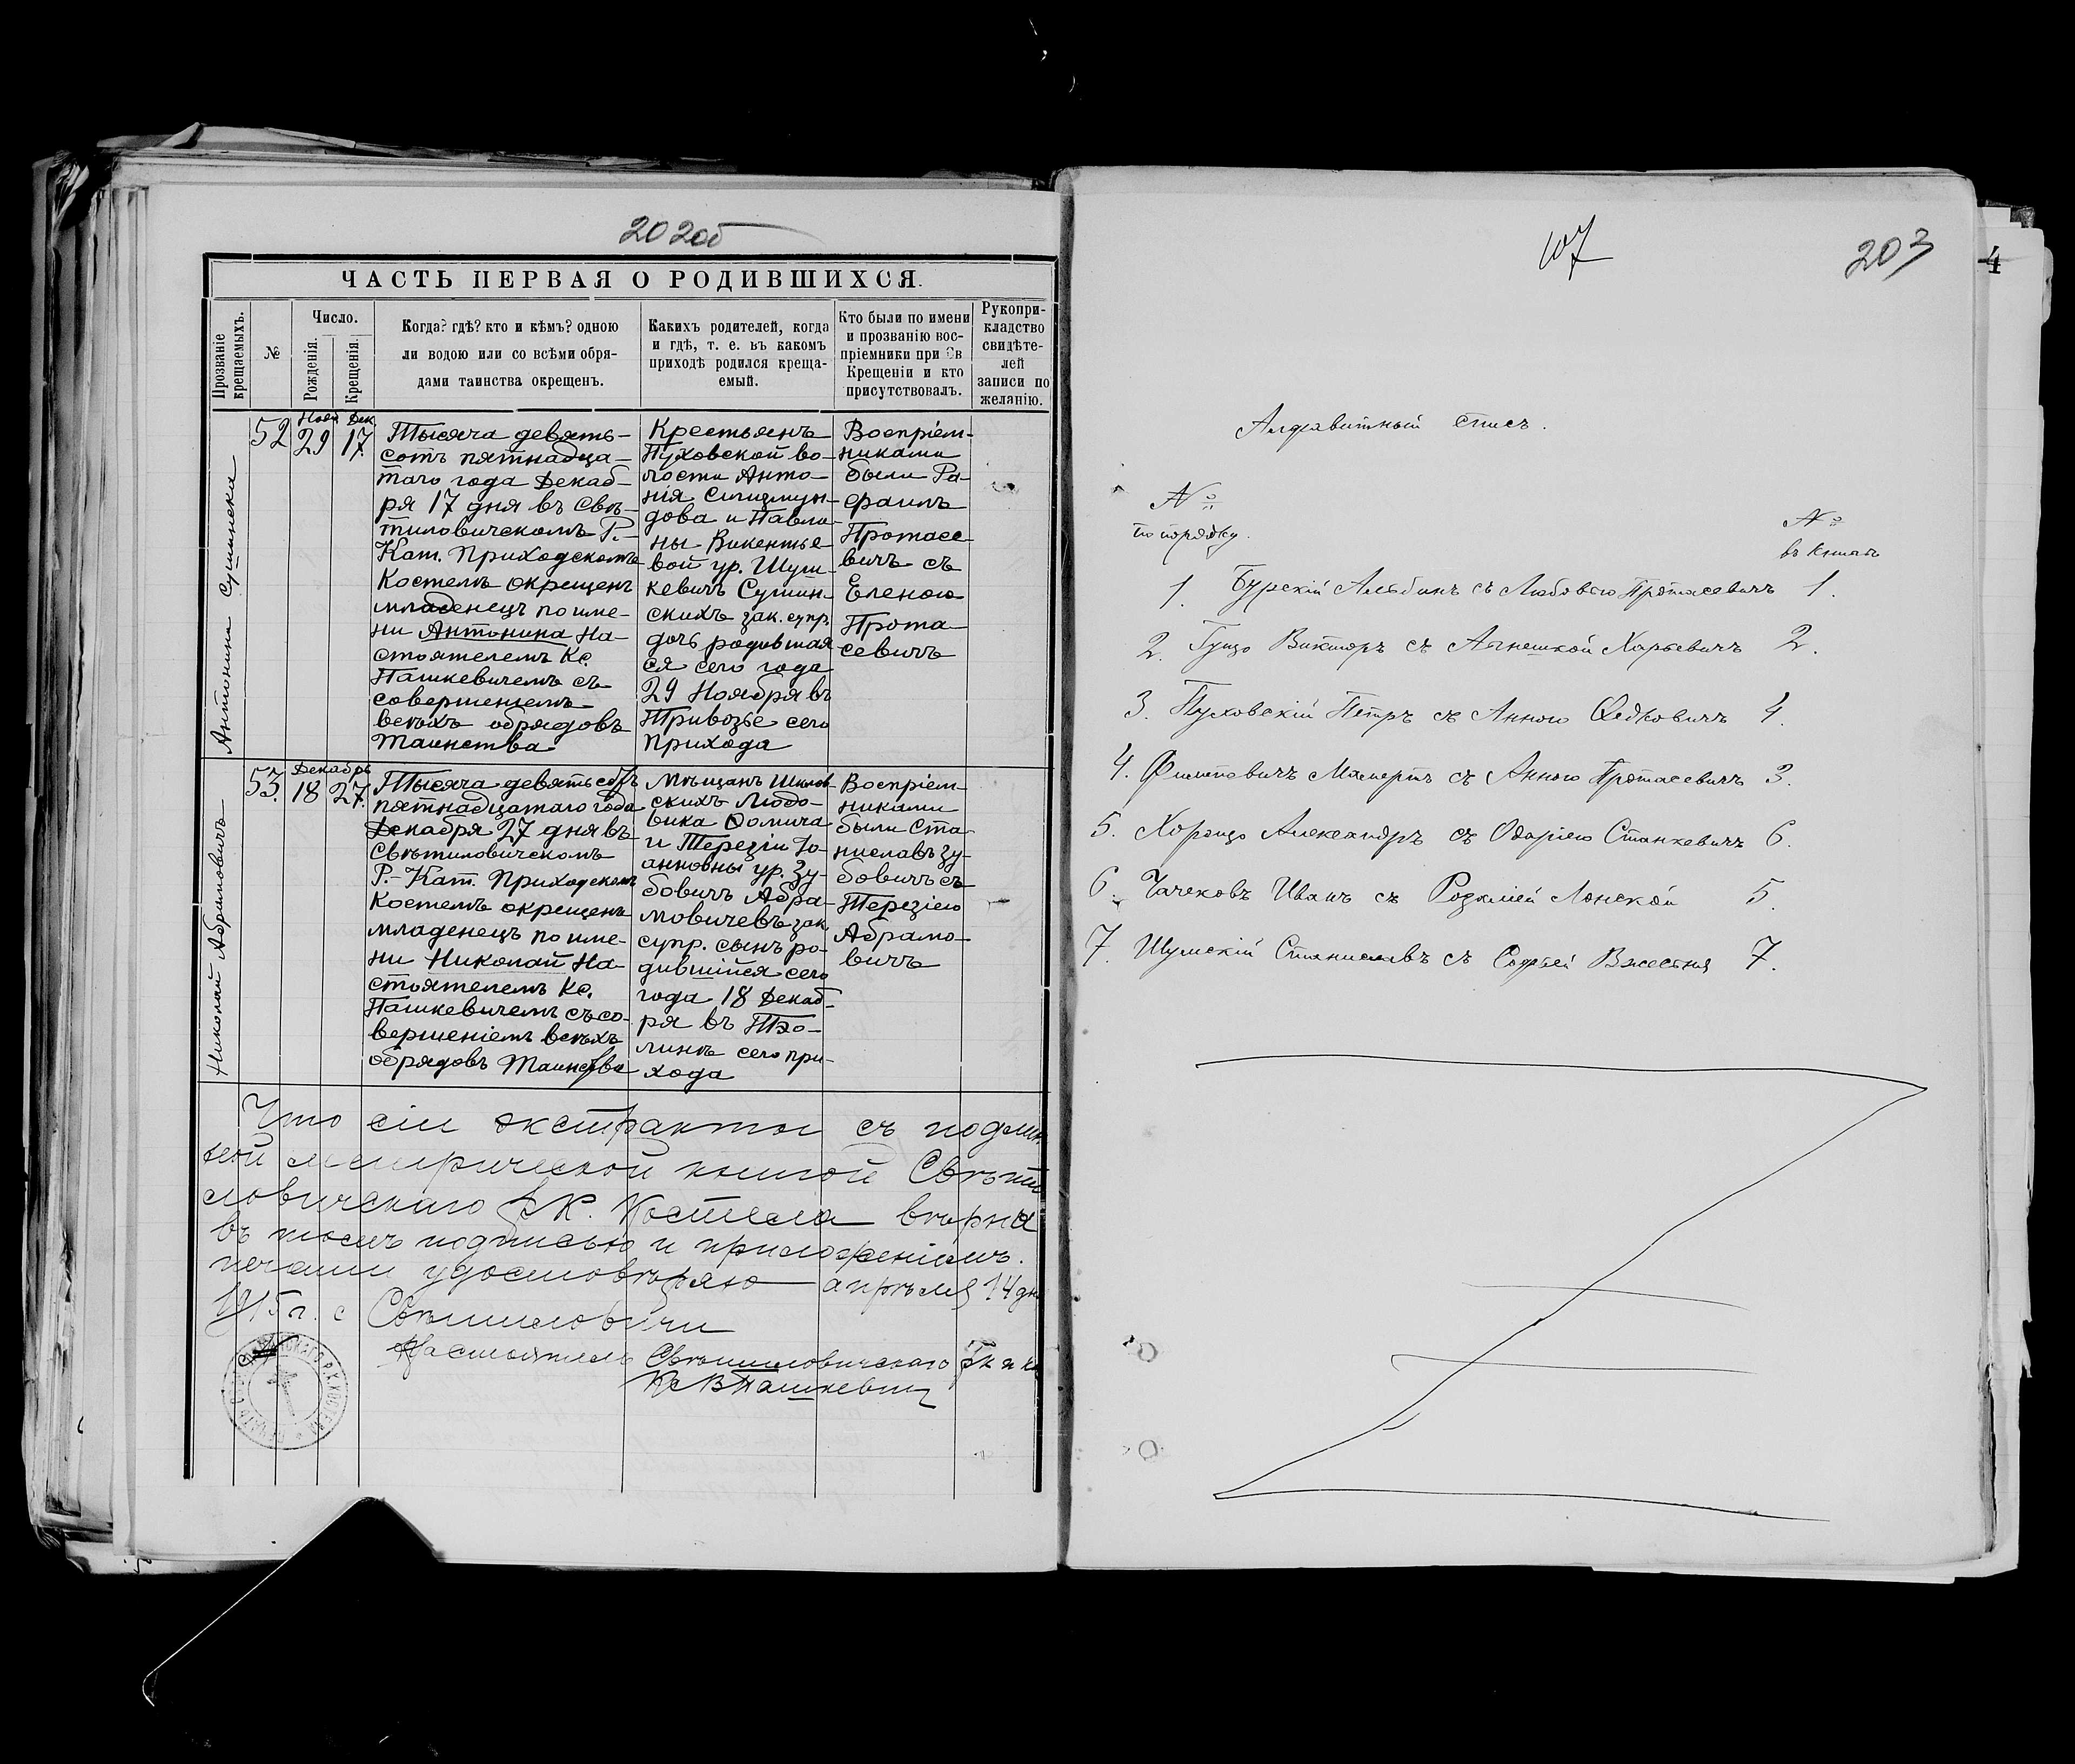 202об
ЧАСТЬ ПЕРВАЯ О РОДИВШИХСЯ.
Прозваніе крещаемыхъ.
№
Число.
Рожденія.
Крещенія.
Когда? гдѣ? кто и кѣмъ? одною
ли водою или со всѣми обря-
дами таинства окрещенъ.
Какихъ родителей, когда
и гдѣ, т. е. въ какомъ
приходѣ родился креща-
емый.
Кто были по имени
и прозванію вос-
пріемники при Св
Крещеніи и кто
присутствовалъ.
Рукопри-
кладство
свидѣте-
лей
записи по
желанію.
Антонина Сушинска
52
Нояб
29
Дек
17.
Тысяча девять-
сотъ пятнадца-
таго года Декаб-
ря 17 дня въ Свѣ-
тиловическомъ Р.-
Кат. Приходскомъ
Костелѣ окрещенъ
младенецъ по име-
ни Антонина На-
стоятелемъ Кс.
Пашкевичемъ съ
совершеніемъ
всѣхъ обрядовъ
Таинства
Крестьянъ
Пуховской во-
лости Анто-
нія Сигизмун-
дова и Павли-
ны Викентье-
вой ур. Шуш-
кевичъ Сушин-
скихъ зак. супр.
дочь родившая-
ся сего года
29 Ноября въ
Привозье сего
Прихода
Воспріем-
никами
были Ра-
фаилъ
Протасе
вичъ съ
Еленою
Прота-
севичъ
Николай Абрамовичъ
53.
Декабрь
18
27.
Тысяча девятьсотъ
пятнадцатаго года
Декабря 27 дня въ
Свѣтиловическомъ
Р.-Кат. Приходскомъ
Костелѣ окрещенъ
младенецъ по име-
ни Николай На-
стоятелемъ Кс.
Пашкевичемъ съ со-
вершеніемъ всѣхъ
обрядовъ Таинства
Мѣщанъ Шклов-
скихъ Людо-
вика Ѳомича
и Терезіи Іо-
анновны ур. Зу-
бовичъ Абра-
мовичевъ зак.
супр. сынъ ро-
дившійся сего
года 18 Декаб-
ря въ
сего при-
хода
Воспріем-
никами
были Ста-
ниславъ Зу-
бовичъ съ
Терезіею
Абрамо-
вичъ
Что сіи экстракты съ подлин
ной метрической книгой Свѣти
ловичскаго Р.К. Костела вѣрны
въ томъ подписью и приложеніемъ
печати удостовѣряю апрѣля 14 дня
1915 г. с Свѣтиловичи
Настоятель Свѣтиловичскаго
Кс В Пашкевичъ
107
203
4
Алфавитный списъ.
№
по порядку.
№
въ книгѣ
1. Бурскій Альбинъ съ Любовью Протасевичъ 1.
2. Гуцо Викторъ съ Агнешкой Харевичъ 2.
3. Пуховскій Петръ съ Анною Федковичъ 4.
4. Филиповичъ Мамертъ съ Анною Протасевичъ 3.
5. Хорощо Александръ съ Станкевичъ 6.
6. Чачековъ Иванъ съ Розаліей Лонской 5.
7. Шумскій Станиславъ съ Софіей 7.